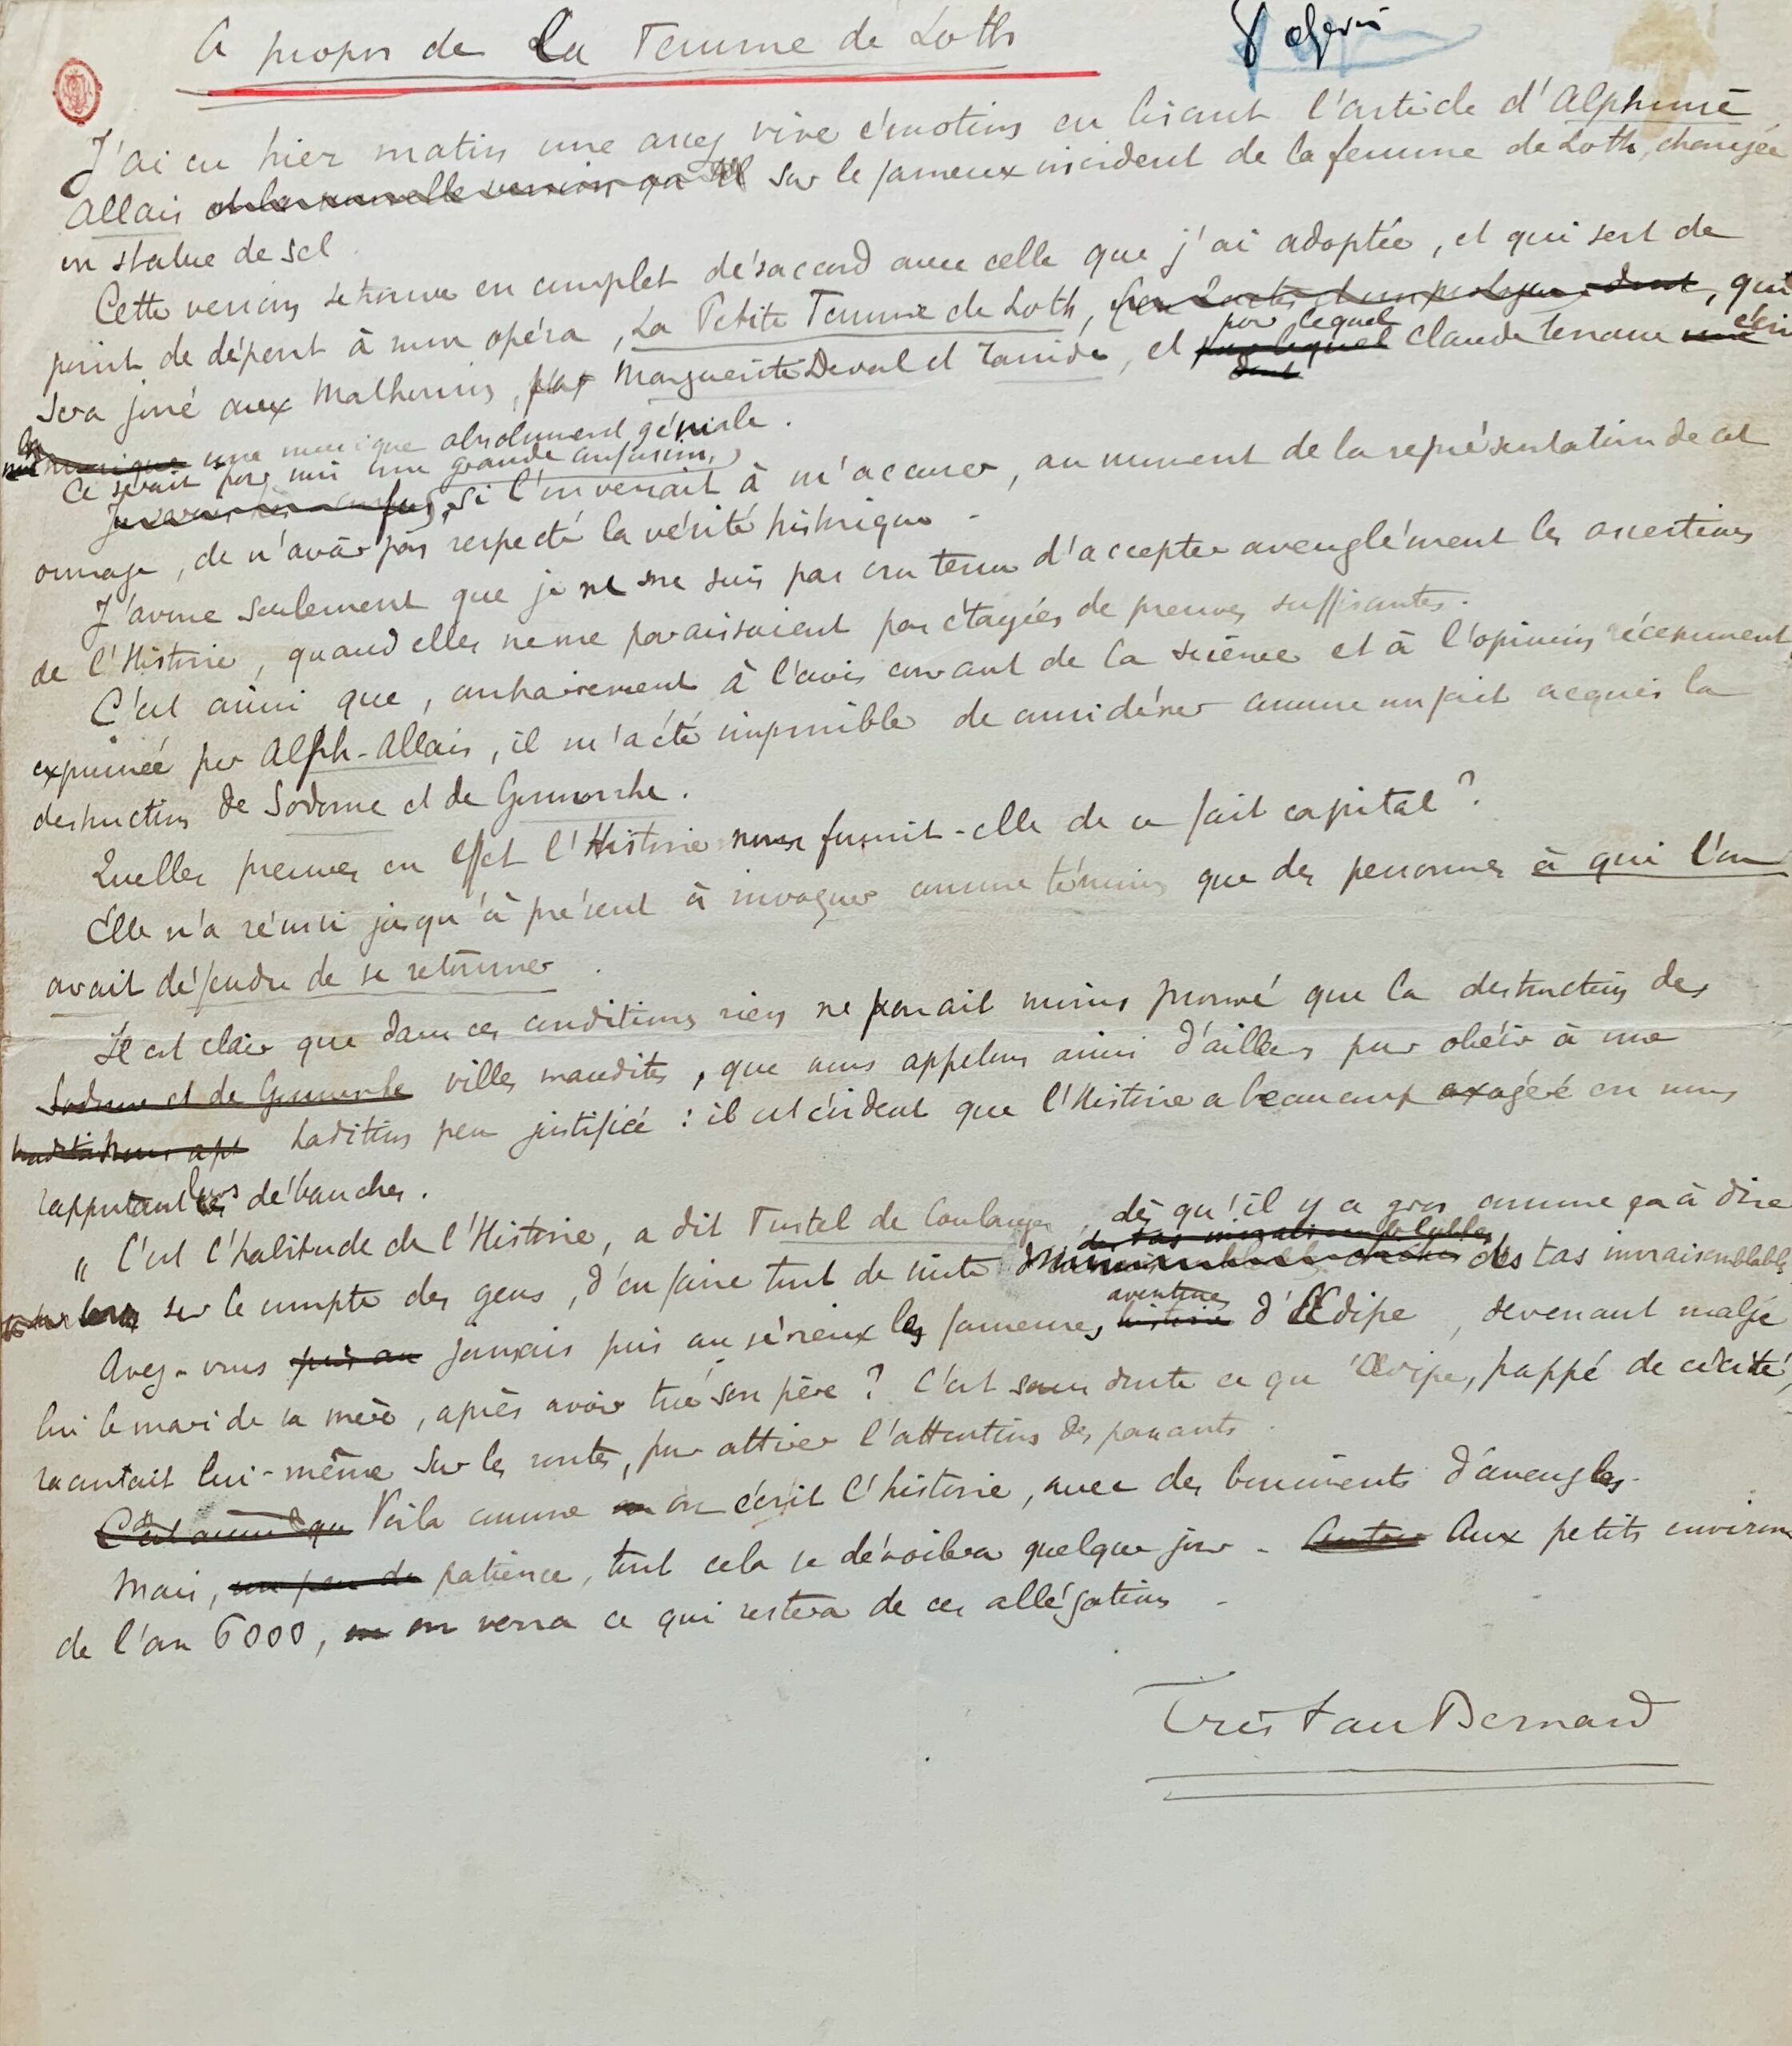 A propos de La Femme de Loth
J'ai eu hier matin une assez vive émotion en lisant l'article d'Alphonse
Allais sur le fameux incident de la femme de Loth, changée
en statue de sel.
Cette version se trouve en complet désaccord avec celle que j'ai adoptée, et qui sert de
point de départ à mon opéra, La Petite Femme de Loth, qui
sera joué aux Mathurins, par Marguerite Deval et Tarride, et pour lequel Claude Terrasse écrit
une musique absolument géniale.
Ce serait pour moi une grande confusion, si l'on venait à m'accuser, au moment de la représentation de cet
ouvrage, de n'avoir pas respecté la vérité historique.
J'avoue seulement que je ne me suis pas cru tenu d'accepter aveuglément les assertions
de l'Histoire, quand elles ne me paraissaient pas étayées de preuves suffisantes.
C'est ainsi que, contrairement à l'avis courant de la science et à l'opinion récemment
exprimée par Alph-Allais, il m'a été impossible de considérer comme un fait acquis la
destruction de Sodome et de Gomorrhe.
Quelles preuves en effet l'Histoire nous fournit-elle de ce fait capital ?
Elle n'a réussi jusqu'à présent à invoquer comme témoins que des personnes à qui l'on
avait défendu de se retourner.
Il est clair que dans ces conditions rien ne parait moins prouvé que la destruction des
Sodome et de Gomorrhe villes maudites, que nous appelons ainsi d'ailleurs pour obéir à une
tradition peu justifiée : il est évident que l'Histoire a beaucoup exagéré en nous
rapportant leurs débauches.
" C'est l'habitude de l'Histoire, a dit Fustel de Coulanges, dès qu'il y a gros comme ça à dire
sur le compte des gens, d'en faire tout de suite des tas invraisemblables
Avez-vous jamais pris au sérieux les fameuses aventures d'Œdipe, devenant malgré
lui le mari de sa mère, après avoir tué son père ? C'est sans doute ce qu'Œdipe, frappé de cécité,
racontait lui-même sur les routes, pour attirer l'attention des passants.
Voila comme on écrit l'histoire, avec des boniments d'aveugles.
Mais, patience, tout cela se dévoilera quelque jour. Aux petits environs
de l'an 6000, on verra ce qui restera de ces allégations.
Tristan Bernard